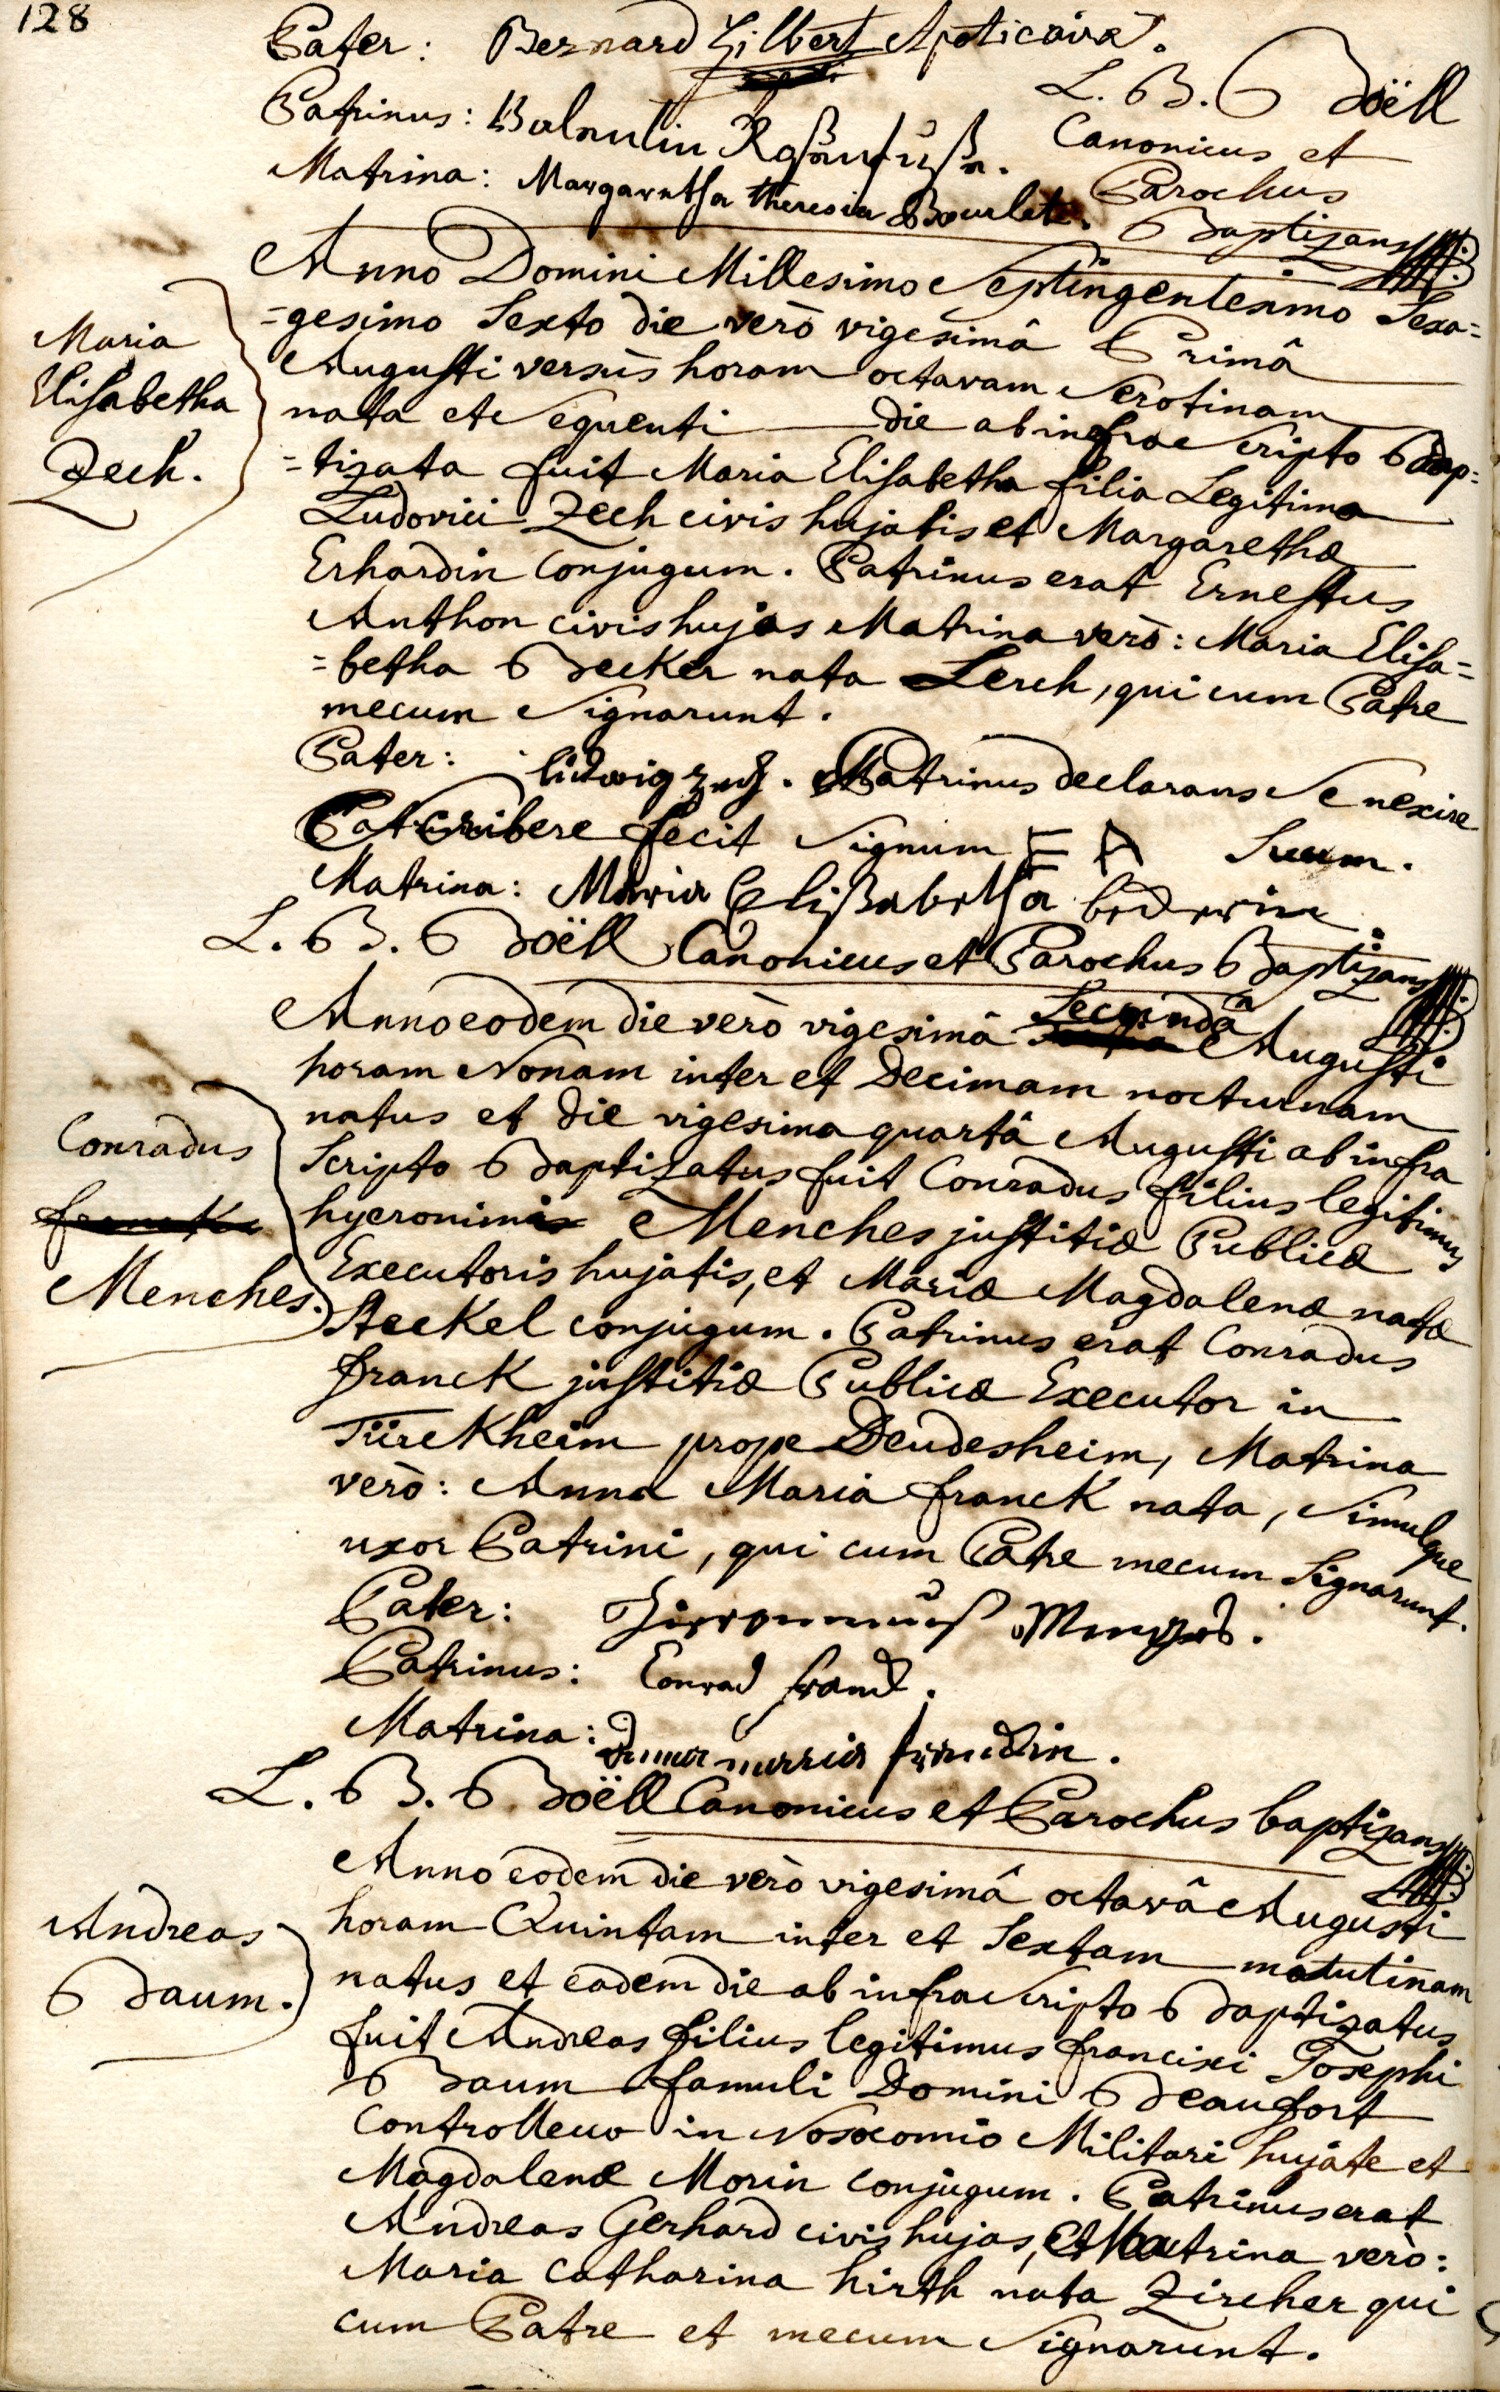 128
Pater: Bernard Gilbert Apoticaire.
Patrinus: Valentin
Matrina: Margaretha theresia Bourlet.
L. B. Boëll
Canonicus et
Parochus
Baptizans
Anno Domini Millesimo Septingentesimo Sexa=
=gesimo Sexto die verò vigesimâ Primâ
Augusti versùs horam octavam Serotinam
nata et Sequenti die ab infra Scripto Bap=
=tizata fuit Maria Elisabetha filia Legitima
Ludovici Zech civis hujatis et Margarethæ
Erhardin Conjugum. Patrinus erat Ernestus
Anthon civis hujas Matrina verò: Maria Elisa=
=betha Becker nata Lerch, qui cum Patre
mecum Signarunt.
Maria
Elisabetha
Zech.
Pater: Ludwig Zech. Patrinus declarans Se nescire
Scribere fecit Signum E A Suum.
Matrina: Maria Elisabetha
L. B. Boëll Canonicus et Parochus Baptizans
Anno eodem die verò vigesimâ Secundâ Augusti
horam Nonam inter et Decimam nocturnam
natus et die vigesima quartâ Augusti ab infra
Scripto Baptizatus fuit Conradus filius legitimus
hyeronimi Menches justitiæ Publicæ
Executoris hujatis, et Mariæ Magdalenæ natæ
Steckel conjugum. Patrinus erat Conradus
franck justitiæ Publicæ Executor in
Türckheim prope Deudesheim, Matrina
verò: Anna Maria franck nata, Simulque
uxor Patrini, qui cum Patre mecum Signarunt.
Conradus
franck
Menches.
Pater: Hieronimus Menges.
Patrinus: Conrad franck.
Matrina: Anna maria franckin.
L. B. Boëll Canonicus et Parochus baptizans
Anno eodem die verò vigesimâ octavâ Augusti
horam Quintam inter et Sextam matutinam
natus et eadem die ab infra Scripto Baptizatus
fuit Andreas filius legitimus francisci Josephi
Baum famuli Domini Beaufort
Controlleur in Nosocomio Militari hujate et
Magdalenæ Morin conjugum. Patrinus erat
Andreas Gerhard civis hujas, et Matrina verò:
Maria Catharina hirth nata Zircher qui
cum Patre et mecum Signarunt.
Andreas
Baum.